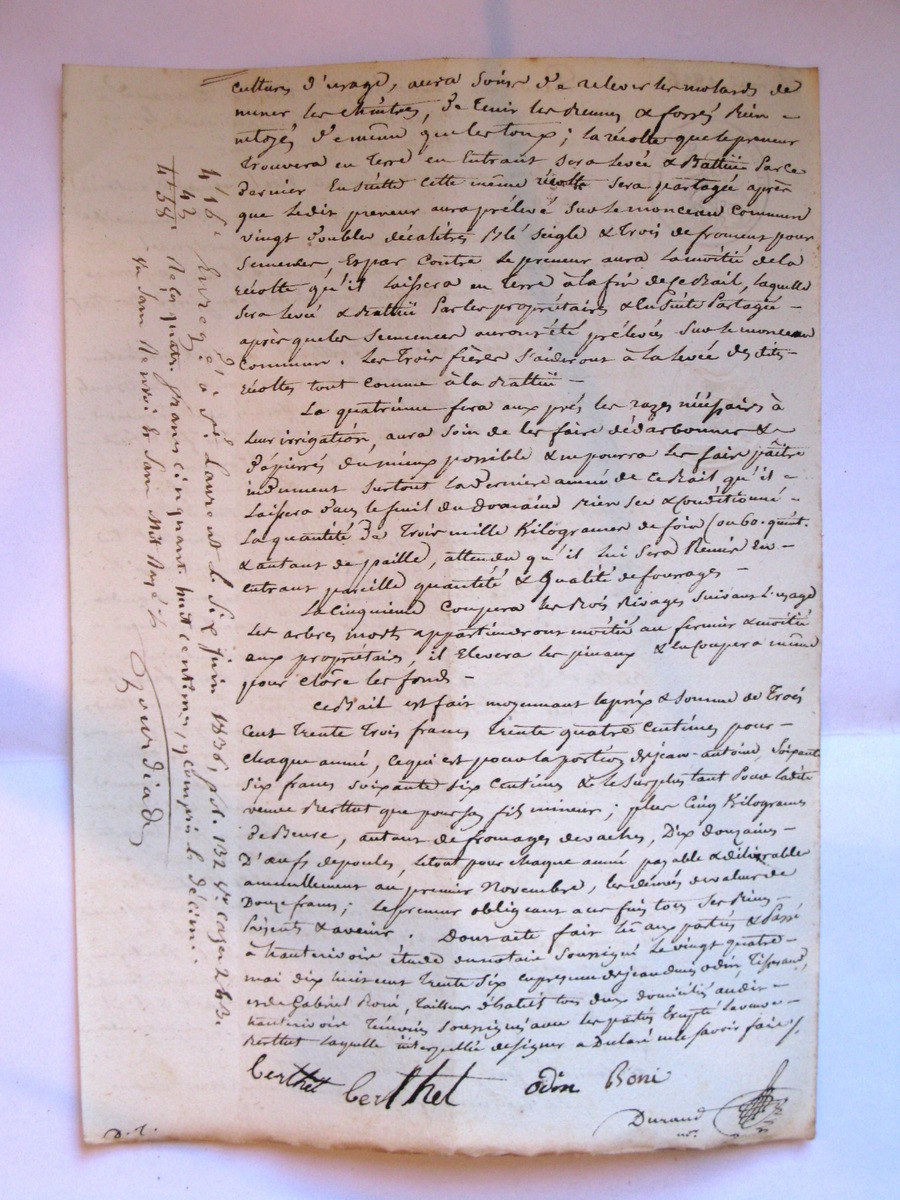 cultures d'usage, aura soin de relever les motards de
miner les chintres, de tenir les rennes & fossés bien
netoyés de même que les toux; la récolte que le preneur
trouvera en terre en entrant sera levée & battue par ce
dernier Ensuitte cette même récolte sera partagée après
que ledit preneur aura prélevé sur le monceau commun
vingt doubles décalitres blé seigle & trois de froment pour
semences, Et par contre le preneur aura la moitié de la
récolte qu'il laissera en terre à la fin de ce Bail, laquelle
sera levée & battue par les propriétaires & Ensuite partagée
après que les semences auront été prélevées sur le monceau
commun. Les trois frères s'aideront à la levée desdites
récoltes tout comme à la battue
La quatrième fera aux prés les razes nécessaires à
leur irrigation, aura soin de les faire dédarbonner &
dépierrés du mieux possible & ne pourra les faire paître
induement surtout la dernière année de ce Bail qu'il
laissera dans le fenil du domaine bien sec & conditionné
la quantité de trois mille Kilogrames de foin (ou 60 quint.
& autant de paille, attendu qu'il lui sera remis en
entrant pareille quantité & qualité de fourrages
La Cinquième coupera les bois rivages suivant l'usage
les arbres morts appartiendront moitié au fermier & moitié
aux propriétaires, il Elevera les pinaux & En coupera même
pour clôre les fonds
Ce Bail est fait moyennant le prix & somme de Trois
cent trente trois francs trente quatre centimes pour
chaque année, ce qui est pour la portion de jean-antoine, soixante
six francs soixante six centimes & le surplus tant pour ladite
veuve Berthet que pour ses fils mineur; plus cinq Kilogrames
de Beure, autant de fromages de vaches, Dix douzaines
d'œufs de poules, le tout pour chaque année payable & délivrable
annuellement au premier Novembre, les denrées de valeur de
Douze francs; le preneur obligeant à ces fins tous ses biens
Présents & avenir. Dont acte fait lu aux parties & Passé
à hauterivoire étude du notaire soussigné le vingt quatre
mai dix huit cent trente six en présence de jean odin tisserand,
et de Gabriel Boni, tailleur d'habits tous deux domiciliés audit
hauterivoire témoins soussignés avec les parties Excepté la veuve
Berthet laquelle interpellée de signer a Déclaré ne le savoir faire
Berthet Berthet odin Boni
Durand
nre.
D. T.
4 16
42
4 58
Enreg. é à St. Laurent le six juin 1836, fo. 132 Vo. cases 2 & 3.
Reçu quatre francs cinquante huit centimes, y compris le décime.